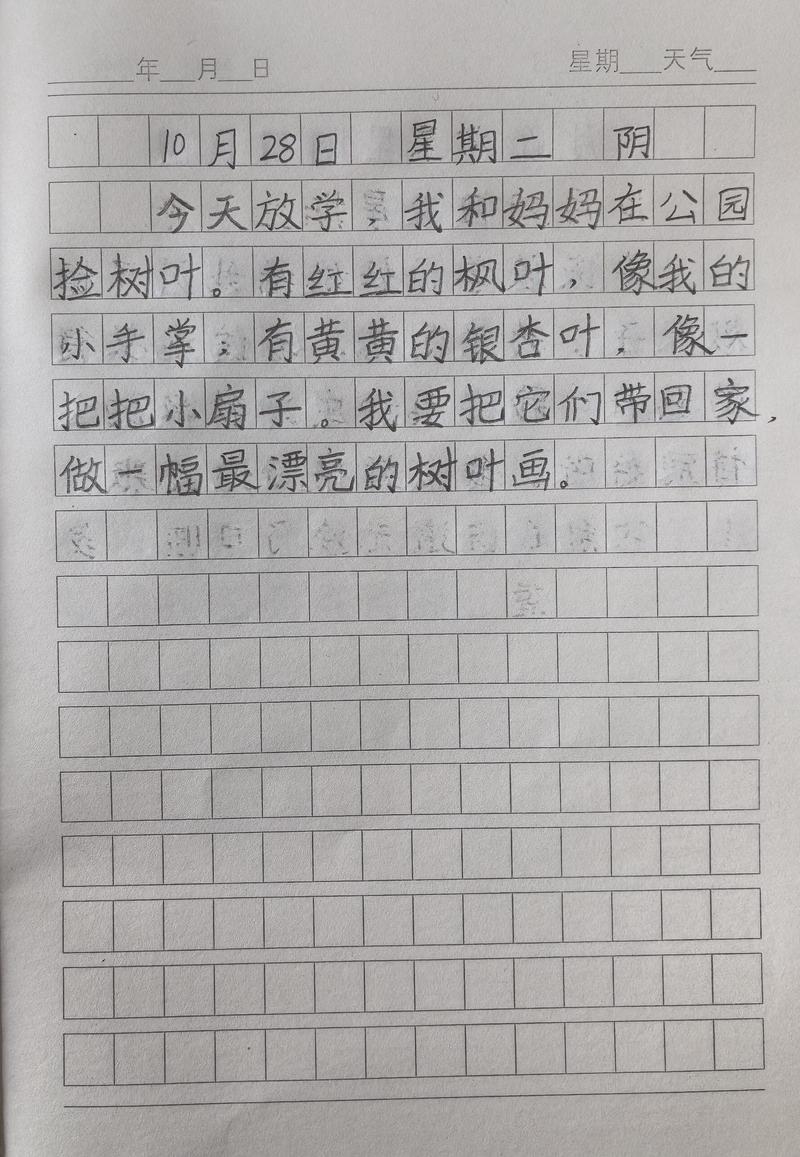 年 月 日 星期 天气
10月28日 星期二 阴
今天放学，我和妈妈在公园
捡树叶。有红红的枫叶，像我的
小手掌；有黄黄的银杏叶，像一
把把小扇子。我要把它们带回家，
做一幅最漂亮的树叶画。